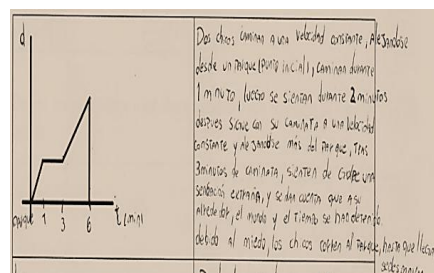 d
Parque 1 3 6 t (min)
Dos chicos caminan a una velocidad constante, alejandose
desde un parque (punto inicial), caminan durante
1 minuto, luego se sientan durante 2 minutos
despues sigue con su caminata a una velocidad
constante y alejandose más del parque, tras
3 minutos de caminata, sienten de golpe una
sensación extraña, y se dan cuenta que a su
alrededor, el mundo y el tiempo se han detenido
debido al miedo, los chicos corren al parque, hasta que llegan